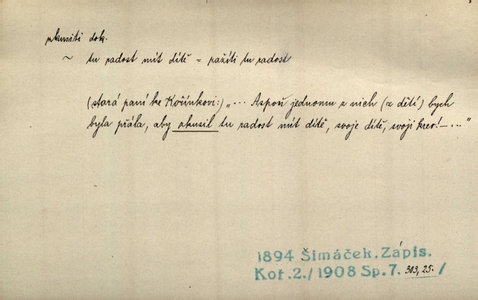 zkusiti dok.
~ tu radost mít dítě = zažíti tu radost
(stará paní ke Kořínkovi:) „... Aspoň jednomu z nich (z dětí) bych
byla přála, aby zkusil tu radost mít dítě, svoje dítě, svoji krev! – ..."
1894 Šimáček. Zápis.
Kot. 2./1908 Sp. 7. 303, 25. /